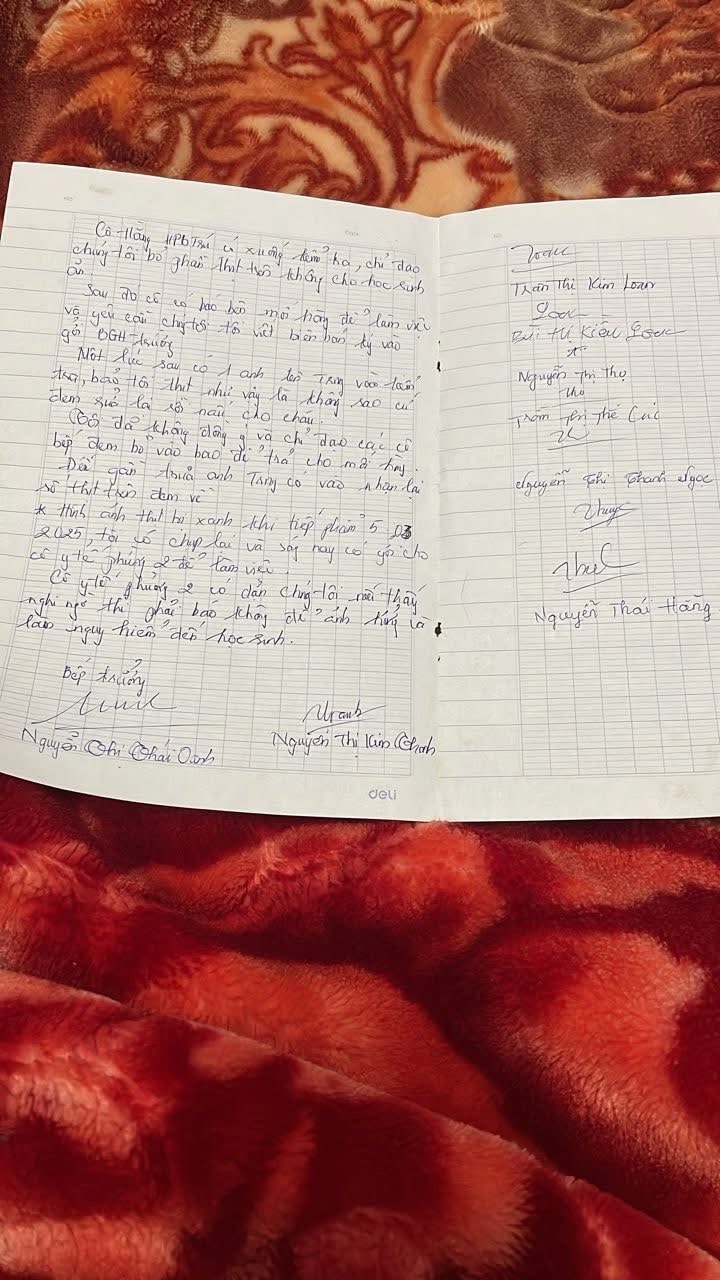 Cô Hằng HPBTrú có xuống kiểm tra, chỉ đạo
chúng tôi bỏ phần thịt trên không cho học sinh
ăn.
Sau đó cô có báo bên mối hàng để làm việc
và yêu cầu chúng tôi viết biên bản ký vào
gởi BGH trường
Một lúc sau có 1 anh tên Trung vào
bảo tôi thịt như vậy là không sao cứ
đem nấu cho cháu.
không đồng ý và chỉ đạo các cô
bếp đem bỏ vào bao để trả cho mối hàng.
Đến gần trưa anh Trung có vào nhận lại
số thịt trên đem về
* Hình ảnh thịt bị xanh khi tiếp phẩm 5 03
2025, tôi có chụp lại và nay có gởi cho
cô y tế phường 2 để làm việc.
Cô y tế phường 2 có dẫn chúng tôi nếu thấy
nghi ngờ thì phải báo không để ảnh hưởng và
làm nguy hiểm đến học sinh.
Bếp trưởng
Nguyễn Thị Thái Oanh
Nguyễn Thị Kim Thanh
deli
Trần Thị Kim Loan
Bùi Thị Kiều Loan
Nguyễn Thị Thọ
Thọ
Trần Thị Thế Cúc
Nguyễn Thị Thanh Ngọc
Nguyễn Thái Hằng